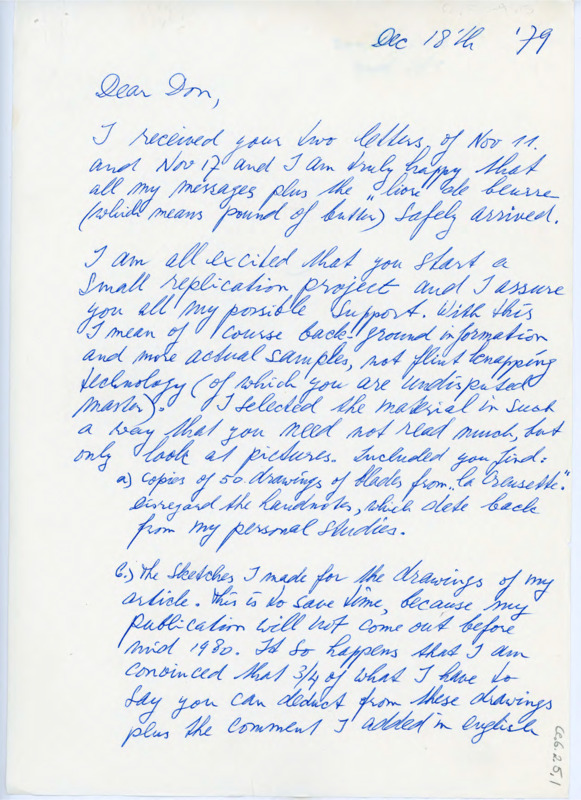 Dec 18'th '79
Dear Don,
I received your two letters of Nov 11.
and Nov 17 and I am truly happy that
all my messages plus the „livre" de beurre
(which means pound of butter) safely arrived.
I am all excited that you start a
small replication project and I assure
you all my possible support. With this
I mean of course back-ground information
and more actual samples, not flint knapping
technology (of which you are undisputed
master). I selected the material in such
a way that you need not read much, but
only look at pictures. Included you find:
a) copies of 50 drawings of blades from „la Creusette".
disregard the handnotes, which date back
from my personal studies.
b.) The sketches I made for the drawings of my
article. This is to save time, because my
publication will not come out before
mid 1980. It so happens that I am
convinced that 3/4 of what I have to
say you can deduct from these drawings
plus the comment I added in english
Ce.6.25,1